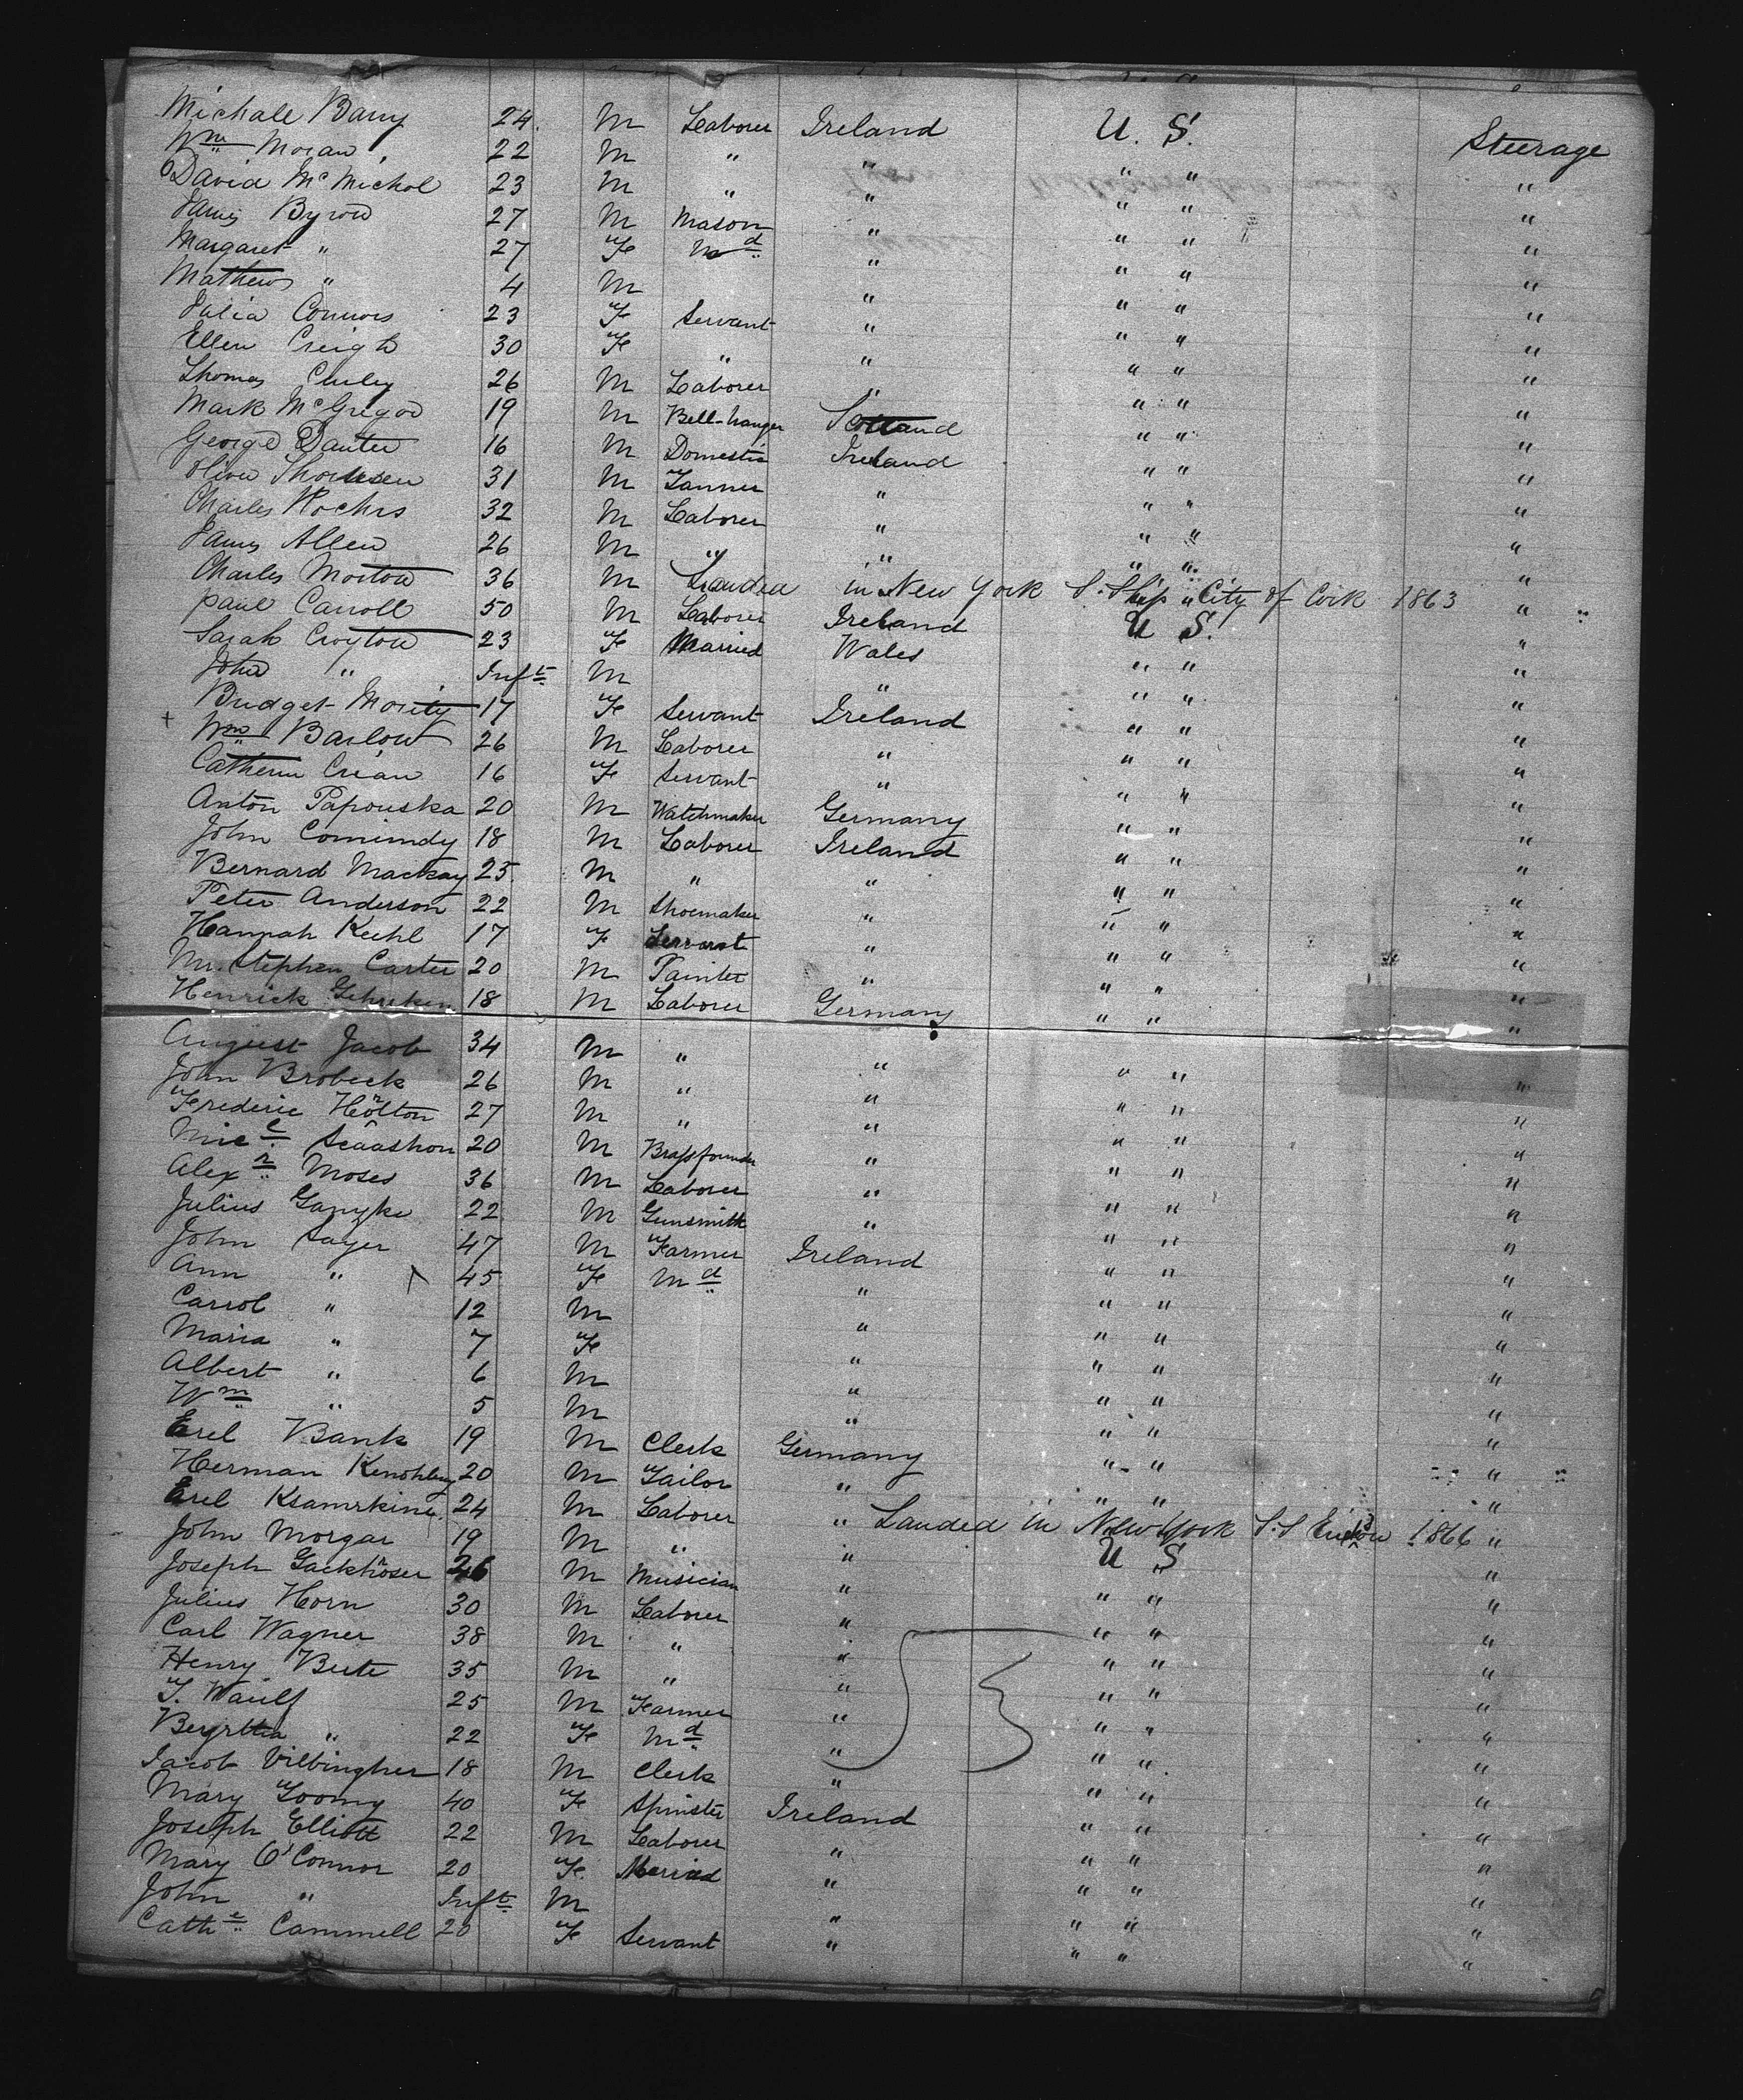 Michale Barry 24. M Laborer Ireland U. S. Steerage
Wm Moran 22 M " " " " "
David McMichol 23 M " " " " "
James Byron 27 M Mason " " " "
Margaret " 27 F Md " " " "
Mathew " 4 M " " " "
Julia Connors 23 F Servant " " " "
Ellen Creigh 30 F " " " " "
Thomas Cluley 26 M Laborer " " " "
Mark McGregor 19 M Bell-hanger Scotland " " "
George 16 M Domestic Ireland " " "
Oliver 31 M Tanner " " " "
Charles 32 M Laborer " " " "
James Allen 26 M " " " " "
Charles Morton 36 M Landed in New York S. Ship City of Cork 1863 "
Paul Carroll 50 M Laborer Ireland U S. "
Sarah Croyton 23 F Married Wales " " "
John " Inft M " " " "
Bridget Mority 17 F Servant Ireland " " "
+ Wm Barlow 26 M Laborer " " " "
Catherin Crian 16 F Servant " " " "
Anton Papouska 20 M Watchmaker Germany " " "
John Comimdy 18 M Laborer Ireland " " "
Bernard Mackay 25. M " " " " "
Peter Anderson 22 M Shoemaker " " " "
Hannah Keehl 17 F Servant " " " "
Mr. Stephen Carter 20 M Painter " " " "
Henrick Gehrken 18 M Laborer Germany " " "
August Jacob 34 M " " " " "
John Brobeck 26 M " " " " "
Frederic Hölton 27 M " " " " "
Micl 20 M Brassfounder " " " "
Alexr Moses 36 M Laborer " " " "
Julius Ganyke 22 M Gunsmith " " " "
John Sayer 47 M Farmer Ireland " " "
Ann " 45 F Md " " " "
Carrol " 12 M " " " "
Maria " 7 F " " " "
Albert " 6 M " " " "
Wm " 5 M " " " "
Erel Bank 19 M Clerk Germany " " "
Herman 20 M Tailor " " " "
Erel 24 M Laborer " Landed in New York S.S 1866 "
John Morgar 19 M " " U S "
Joseph Gackhöser 26 M Musician " " " "
Julius Horn 30 M Laborer " " " "
Carl Wagner 38 M " " " " "
Henry Beite 35 M " " " " "
T. Waulf 25 M Farmer " " " "
Beyrtha " 22 F Md " " " "
Jacob Vilbingher 18 M Clerk " " " "
Mary Toomy 40 F Spinster Ireland " " "
Joseph Elliott 22 M Laborer " " " "
Mary O'Connor 20 F. Married " " " "
John " Inft M " " " "
Cathe Cammell 20 F Servant " " " "